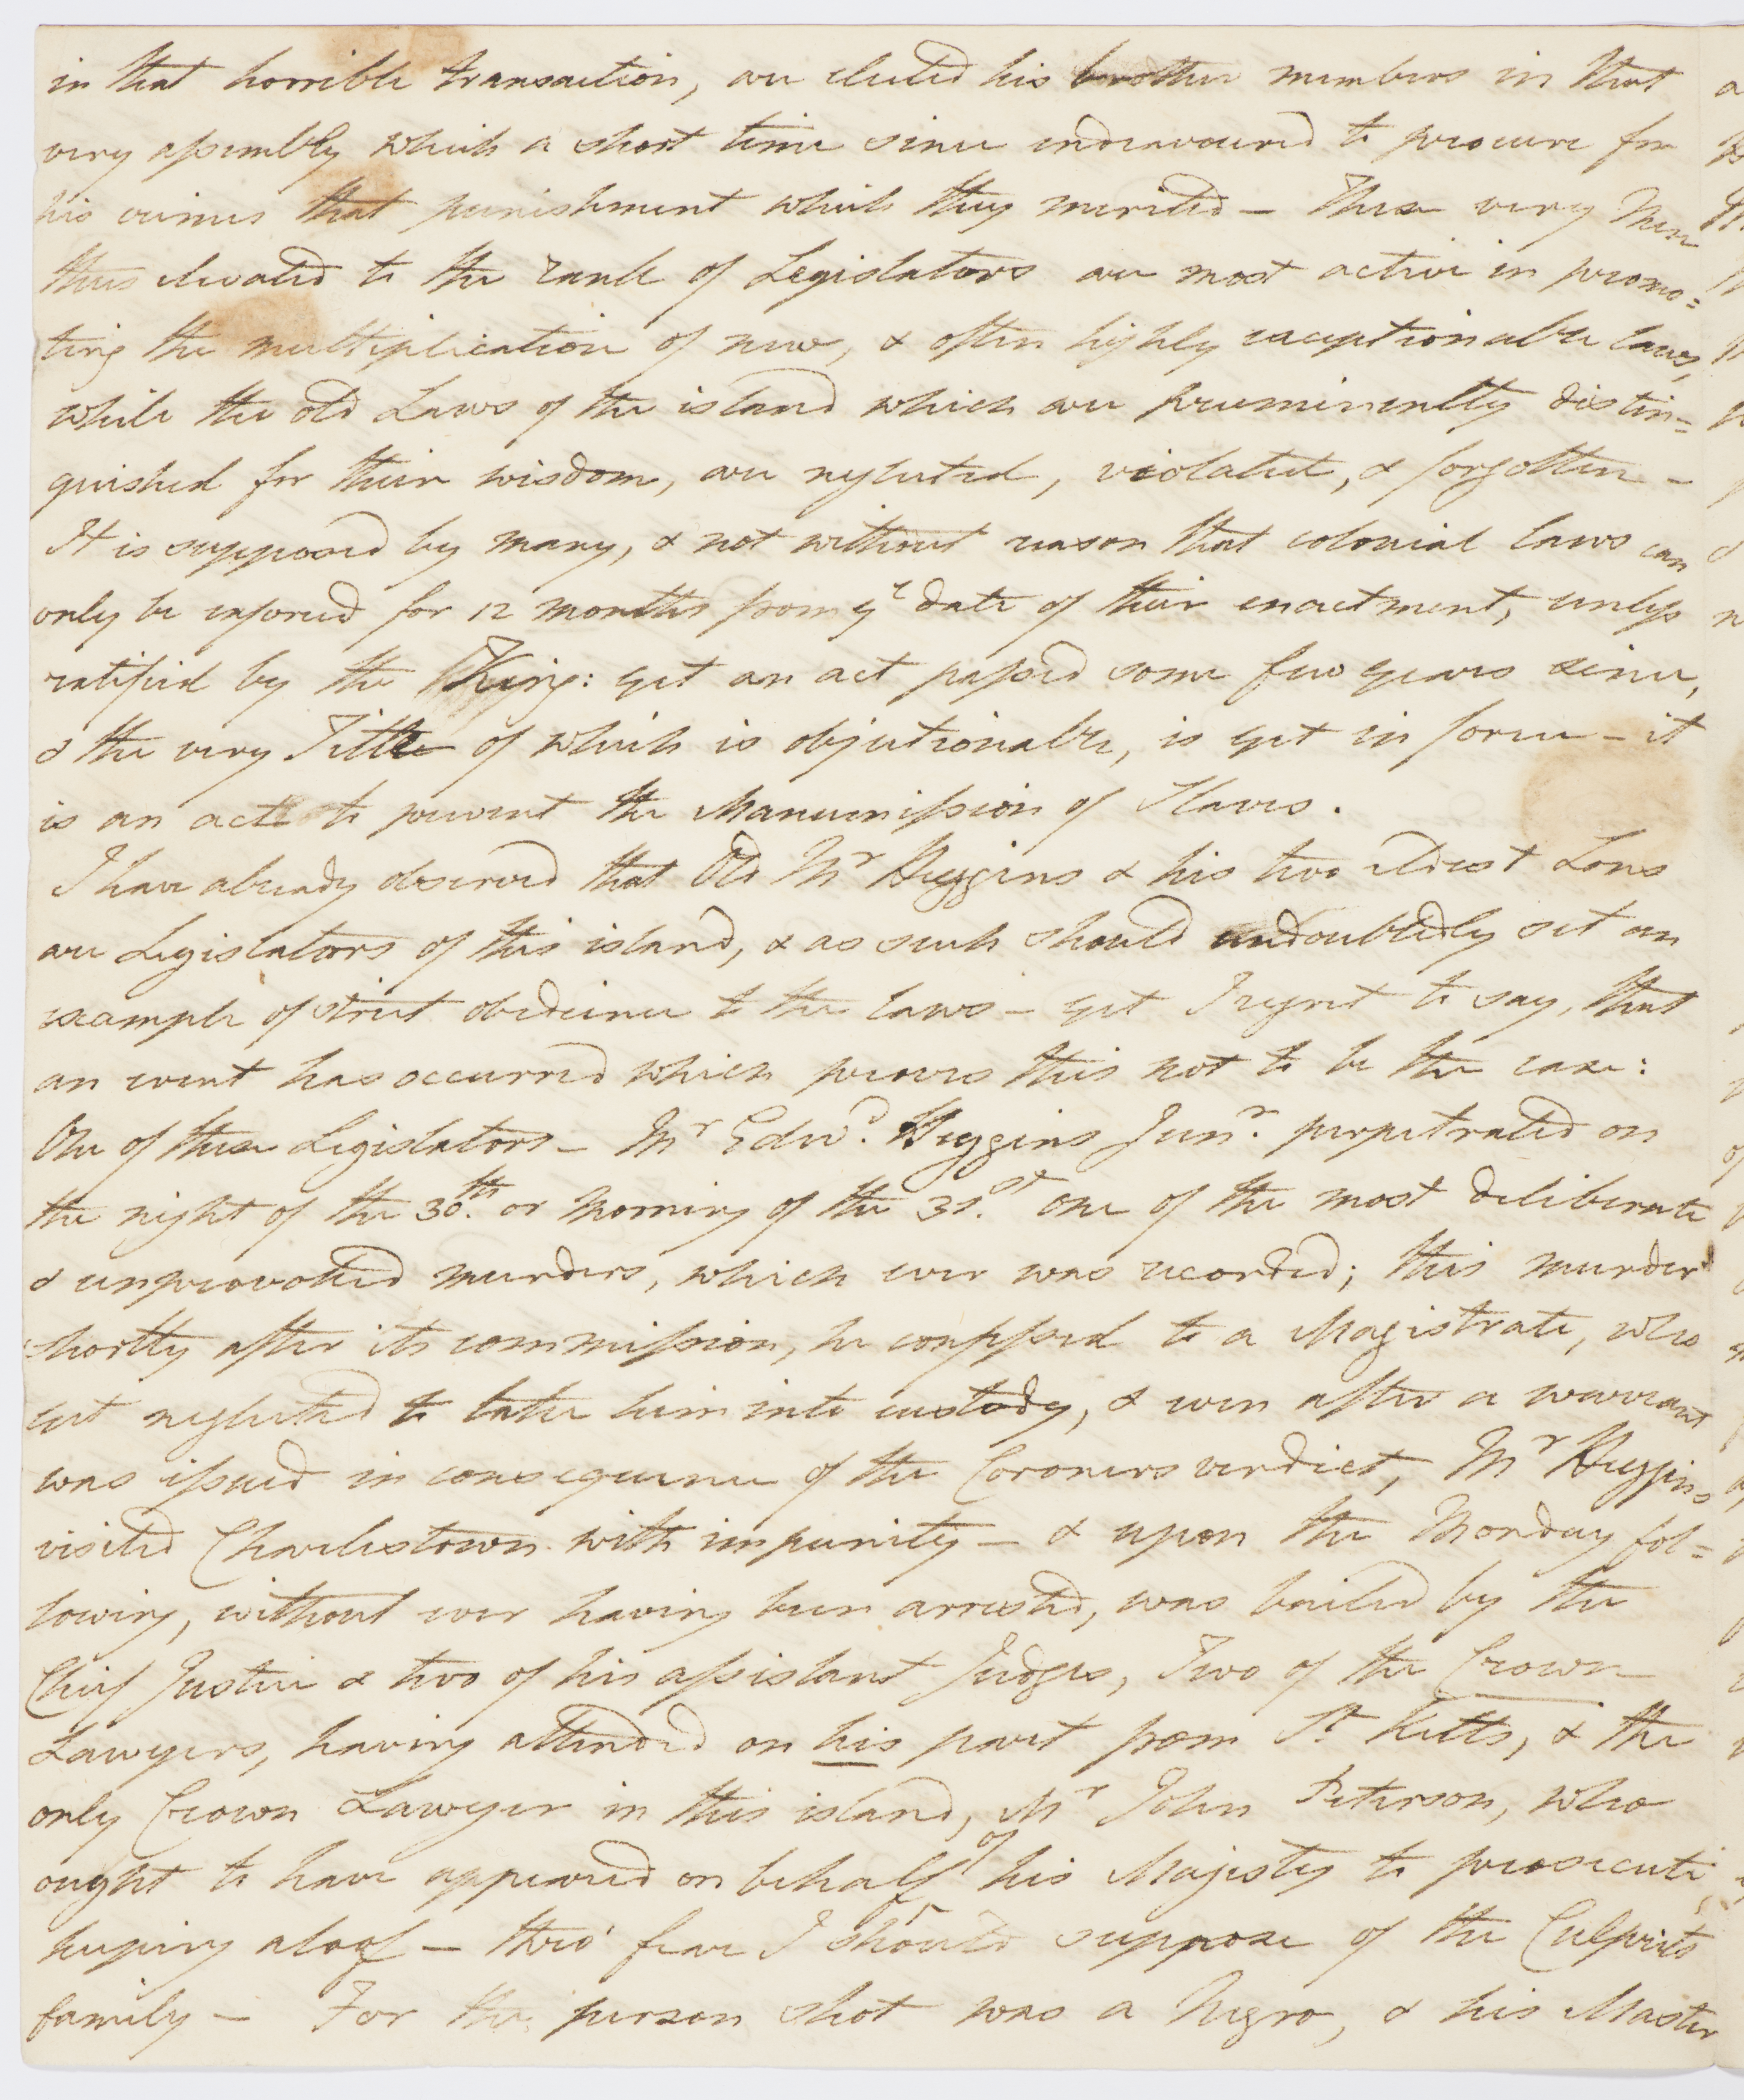 in that horrible transaction, are elected his brother members in that
very assembly which a short time since endeavoured to procure for
his crimes that punishment which they merited — These very Men
thus elevated to the rank of Legislators are most active in promo=
ting the multiplication of new, & often highly exceptionable laws,
while the old Laws of the island which are preeminently distin=
guished for their wisdom, are neglected, violated, & forgotten —
It is supposed by many, & not without reason that colonial laws can
only be enforced for 12 months from ye date of their enactment, unless
ratified by the King: yet an act passed some few years since,
& the very Title of which is objectionable, is yet in force — it
is an act to prevent the Manumission of Slaves.
I have already observed that Old Mr Huggins & his two eldest Sons
are Legislators of this island, & as such should undoubtedly set an
example of strict obedience to the laws — yet I regret to say, that
an event has occurred which proves this not to be the case:
One of these Legislators — Mr Edwd. Huggins Junr. perpetrated on
the night of the 30th. or Morning of the 31st. one of the most deliberate
& unprovoked murders, which ever was recorded; this murder
shortly after its commission, he confessed to a Magistrate, who
yet neglected to take him into custody, & even after a warrant
was issued in consequence of the Coroners verdict, Mr Huggins
visited Charlestown with impunity — & upon the Monday fol=
lowing, without ever having been arrested, was bailed by the
Chief Justice & two of his assistant Judges, Two of the Crown
Lawyers, having attended on his part from St Kitts, & the
only Crown Lawyer in this island, Mr John Peterson, who
ought to have appeared on behalf of his Majesty to prosecute,
keeping aloof — thro' fear I should suppose of the Culprits
family — For the person shot was a Negro, & his Master